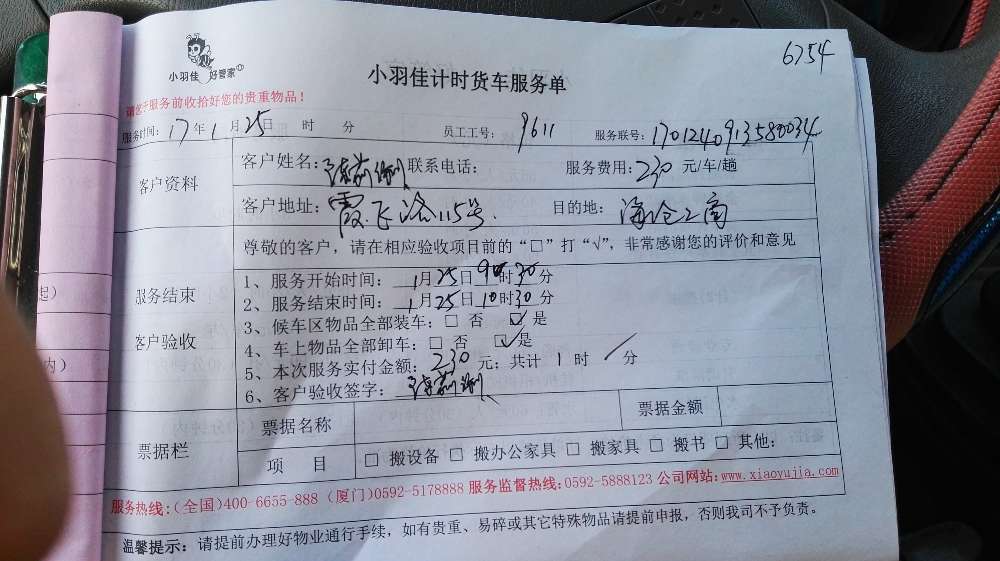 6754
小羽佳 好管家
小羽佳计时货车服务单
请您于服务前收拾好您的贵重物品！
服务时间：17年1月25日 时 分 员工工号：9611 服务联号：1701240913580034
客户资料
客户姓名： 联系电话： 服务费用：230 元/车/趟
客户地址：霞飞路115号. 目的地：海沧工商
尊敬的客户，请在相应验收项目前的“□”打“√”，非常感谢您的评价和意见
服务结束
客户验收
1、服务开始时间：1月25日9时30分
2、服务结束时间：1月25日10时30分
3、候车区物品全部装车：□ 否 ☑ 是
4、车上物品全部卸车：□ 否 ☑ 是
5、本次服务实付金额：230元；共计 1 时 / 分
6、客户验收签字：
票据栏
票据名称 票据金额
项 目 □ 搬设备 □ 搬办公家具 □ 搬家具 □ 搬书 □ 其他：
服务热线：(全国)400-6655-888 (厦门)0592-5178888 服务监督热线：0592-5888123 公司网站：www.xiaoyujia.com
温馨提示：请提前办理好物业通行手续，如有贵重、易碎或其它特殊物品请提前申报，否则我司不予负责。
起）
内）